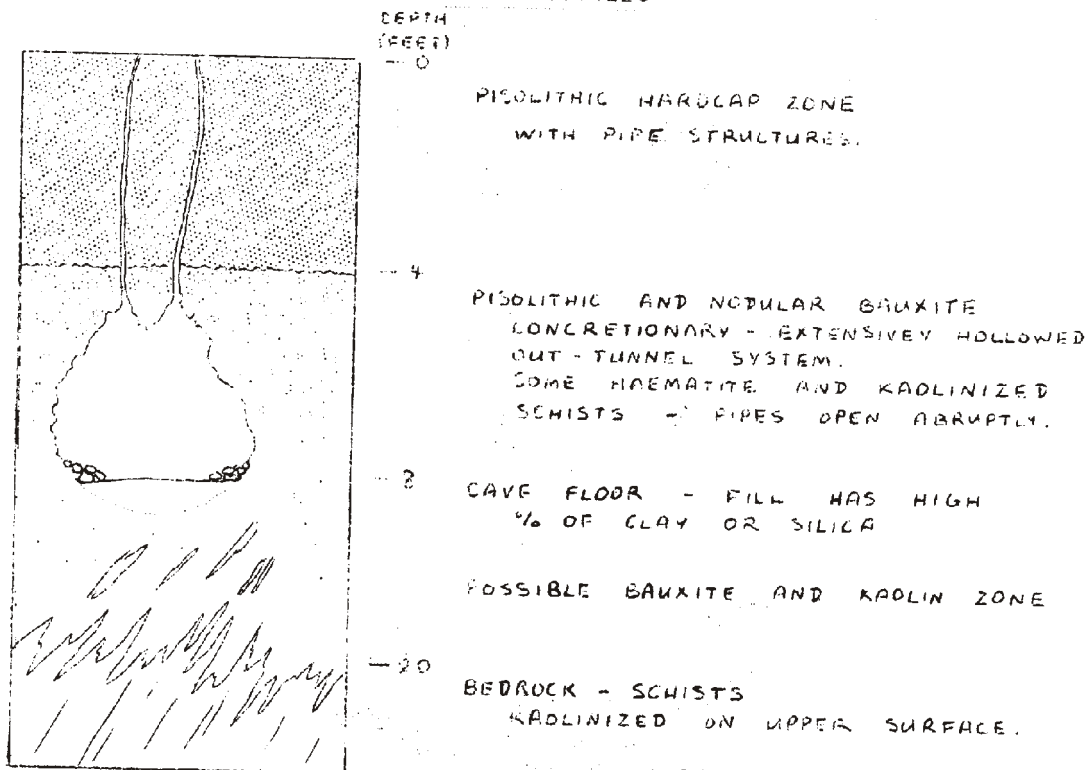 DEPTH
(FEET)
- 0
PISOLITHIC HARDCAP ZONE
WITH PIPE STRUCTURES.
- 4
PISOLITHIC AND NODULAR BAUXITE
CONCRETIONARY - EXTENSIVEY HOLLOWED
OUT - TUNNEL SYSTEM.
SOME HAEMATITE AND KAOLINIZED
SCHISTS - PIPES OPEN ABRUPTLY.
- 8
CAVE FLOOR - FILL HAS HIGH
% OF CLAY OR SILICA
POSSIBLE BAUXITE AND KAOLIN ZONE
- 20
BEDROCK - SCHISTS
KAOLINIZED ON UPPER SURFACE.